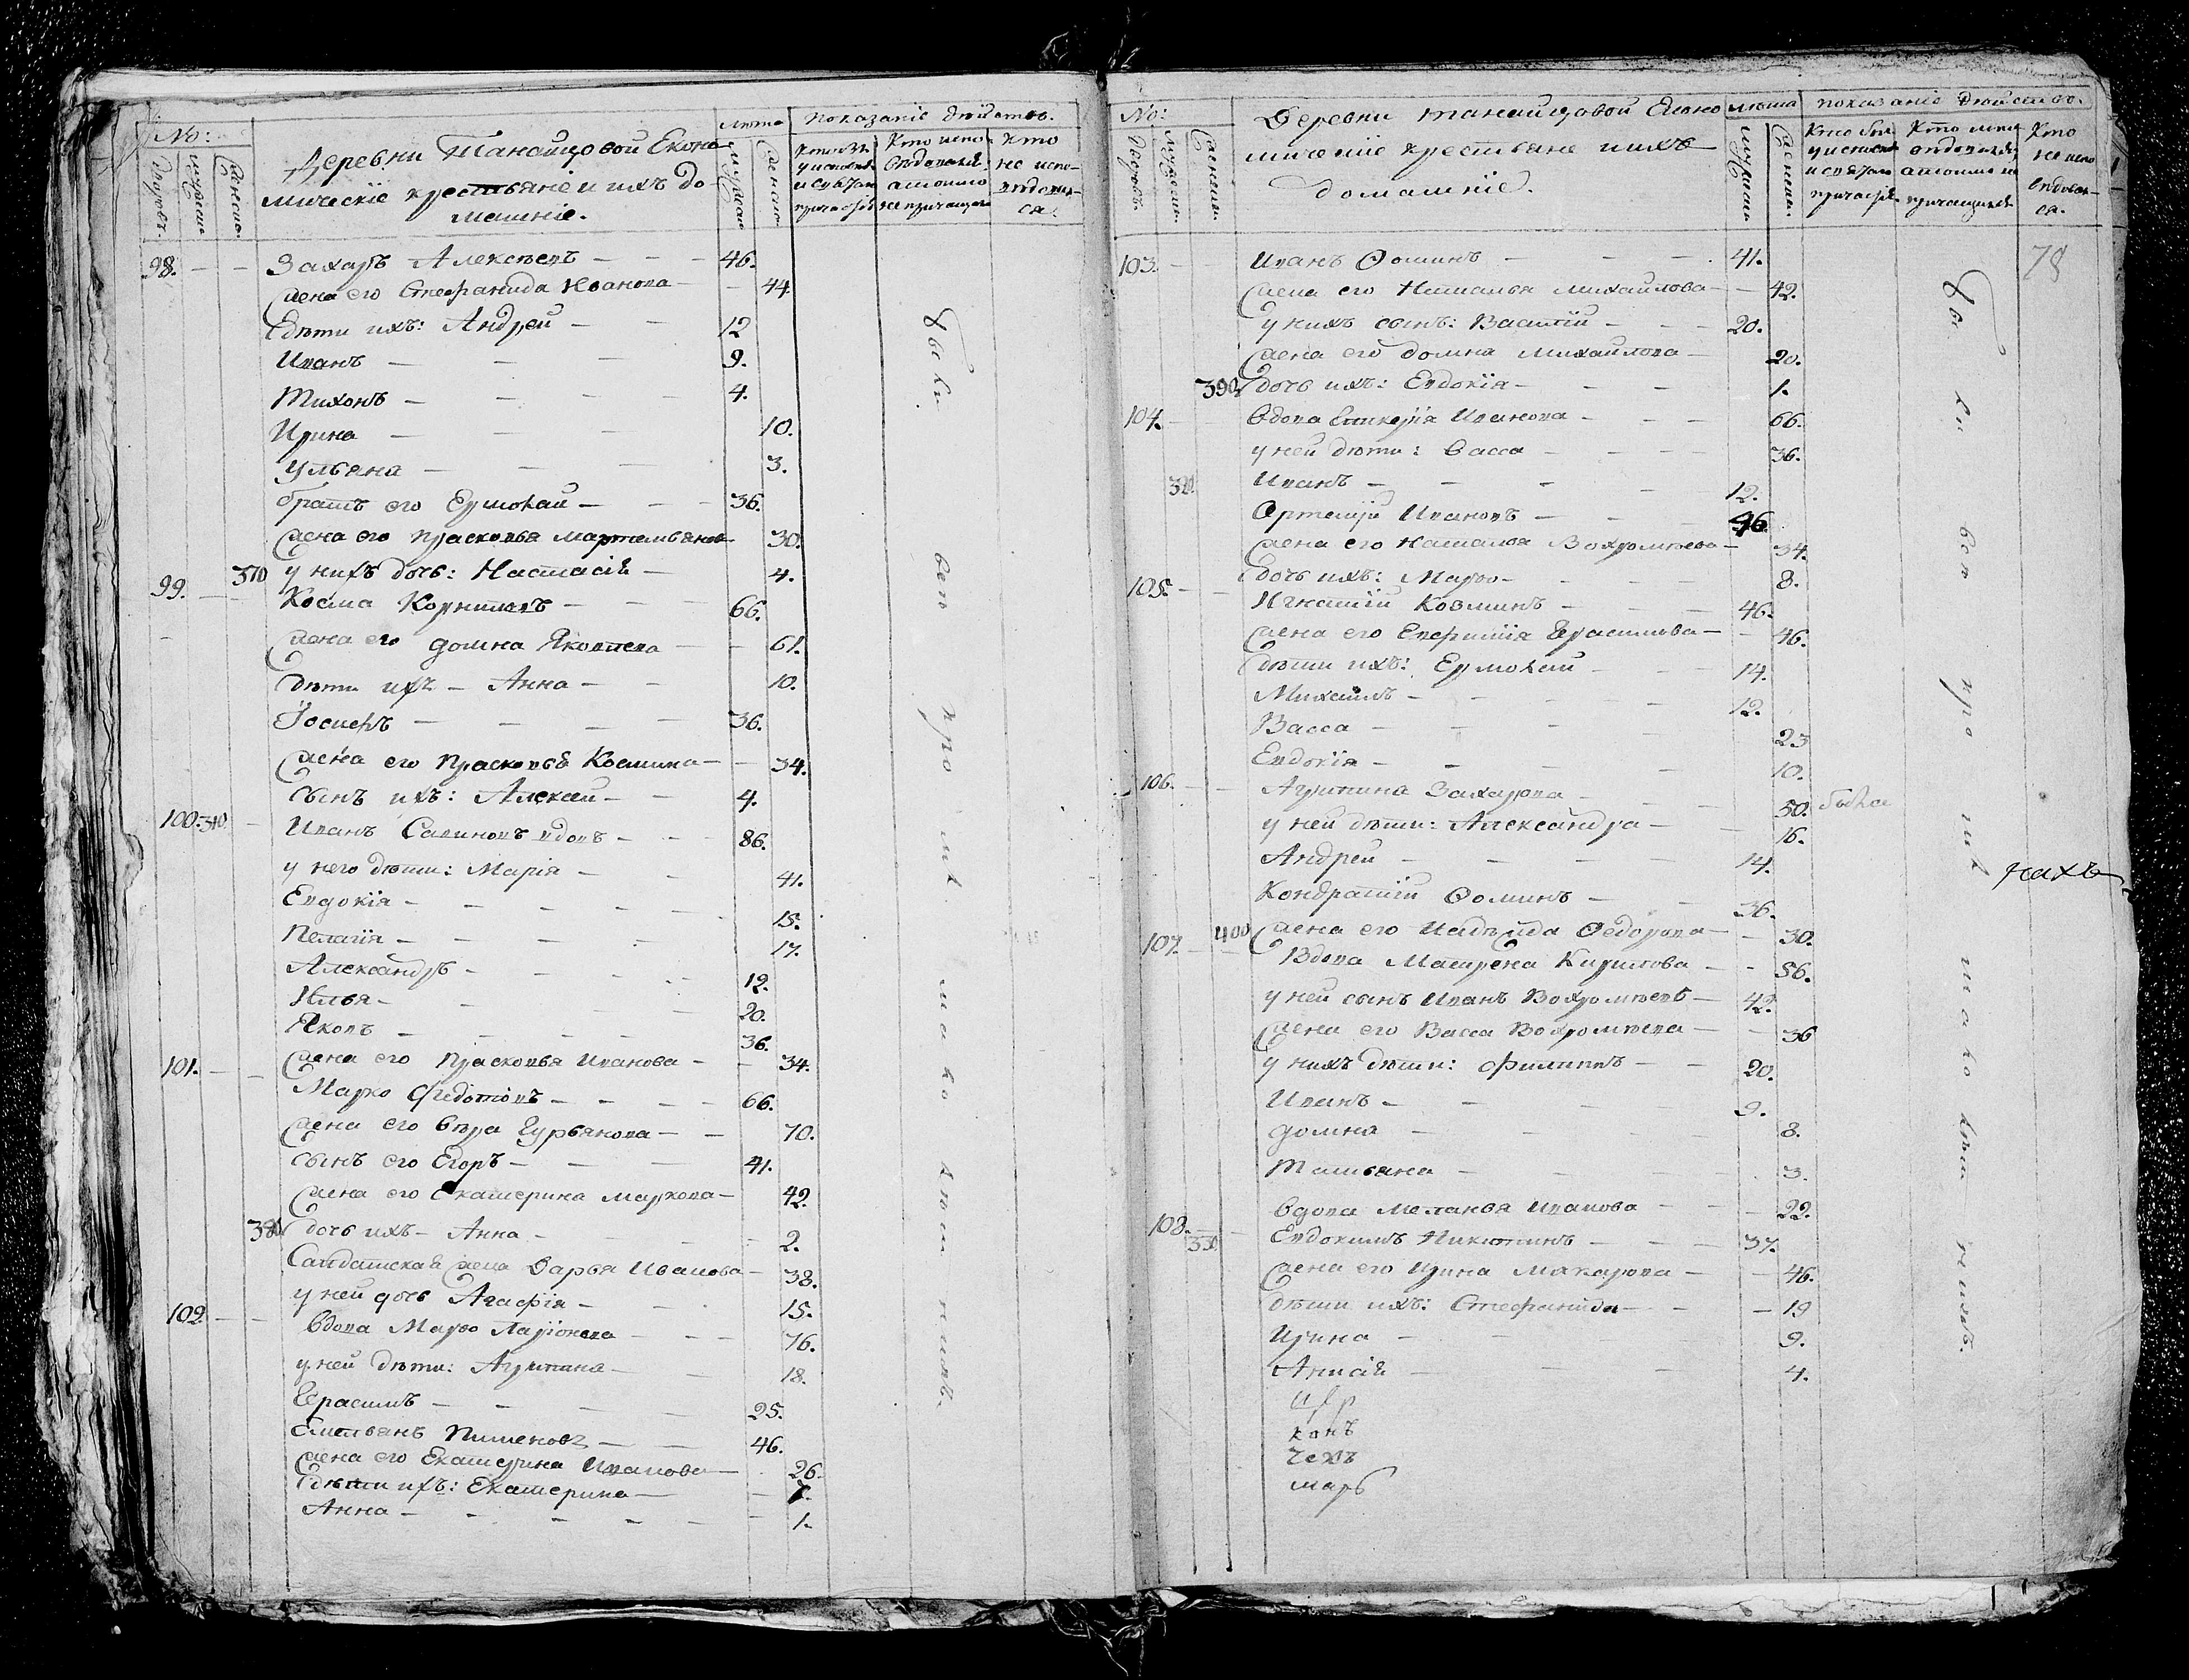 №:
дворовъ. мужеска. женска.
Деревни Танаицовой Еконо-
мическіе крестьяніе и ихъ до-
машніе.
лѣта
мужска женска.
Показаніе дѣйство.
Кто испо-
вѣдовался,
а токмо
не причащался
Кто
не испо-
вѣдовал-
ся.
98. Захаръ Алексѣевъ 46.
Жена его Стефанида Иванова 44
Дѣти ихъ: Андрей 12
Иванъ 9.
Тихонъ 4.
Ирина 10.
Ульяна 3.
братъ его Ермолай 36.
Жена его Прасковья Мартемьянов 30.
370 у нихъ дочь: Настасія 4.
99. Косма Корниловъ 66.
Жена его Домна Яковлева 61.
Дѣти ихъ Анна 10.
Іосифъ 36.
Жена его Прасковья Космина 34.
сынъ ихъ: Алексей 4.
100. 310. Иванъ Савиновъ вдовъ 86.
у него дѣти: Марія 41.
Евдокія 15.
Пелагія 17.
Александръ 12.
Илья 20.
Яковъ 36.
101. Жена его Прасковья Иванова 34.
Марко Федотовъ 66.
Жена его Вѣра Гурьянова 70.
сынъ его Егоръ 41.
Жена его Екатерина Маркова 42.
380 Дочь ихъ Анна 2.
Салдатская Жена Дарья Иванова 38.
у ней дочь Агафія 15.
102. Вдова Марѳо Ларіонова 76.
у ней дѣти: Агрипина 18.
Герасимъ 25.
Емельянъ Пименовъ 46.
Жена его Екатерина Иванова 26.
Дѣти ихъ: Екатерина 7.
Анна 1.
№:
дворовъ. мужеска. женска.
Деревни Танаицовой Еконо
мичекіе крестьяне и ихъ
домашніе.
лѣта
мужска женска.
показаніе дѣйство.
Кто был
у исповѣд
и святаго
причастія
Кто испо
вѣдовался,
а токмо не
причащался
Кто
не испо
вѣдовал-
ся.
78
103. Иванъ Ѳоминъ 41.
Жена его Наталья Михайлова 42.
у нихъ сынъ: Василій 20.
Жена его Домна Михайлова 20.
390 Дочь ихъ: Евдокія 1.
104. Вдова Гликерія Иванова 66.
у ней дѣти: Васса 36.
320. Иванъ 12.
Артемій Ивановъ 46
Жена его Наталья Вохромѣева 34.
Дочь ихъ: Марѳо 8.
105. Игнатій Козминъ 46.
Жена его Евфимія Герасимова 46.
Дѣти ихъ: Ермолай 14.
Михаилъ 12.
Васса 23
Евдокія 10.
106. Агрипина Захарова 50. была
у ней дѣти: Александра 16.
Андрей 14.
Кондратій Ѳоминъ 36.
400 Жена его Надѣжда Ѳедорова 30.
107. Вдова Матрена Кирилова 56.
у ней сынъ Иванъ Вохромѣевъ 42.
Жена его Васса Вохромѣева 36
у нихъ дѣти: Филиппъ 20.
Иванъ 9.
Домна 8.
Татьяна 3.
Вдова Меланья Иванова 22.
108. 330 Евдокимъ Никитинъ 37.
Жена его Ирина Макарова 46.
Дѣти ихъ: Стефанида 19
Ирина 9.
Анисія 4.